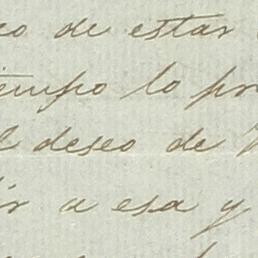 de estar
tiempo lo pr
l deseo de
ir a esa y